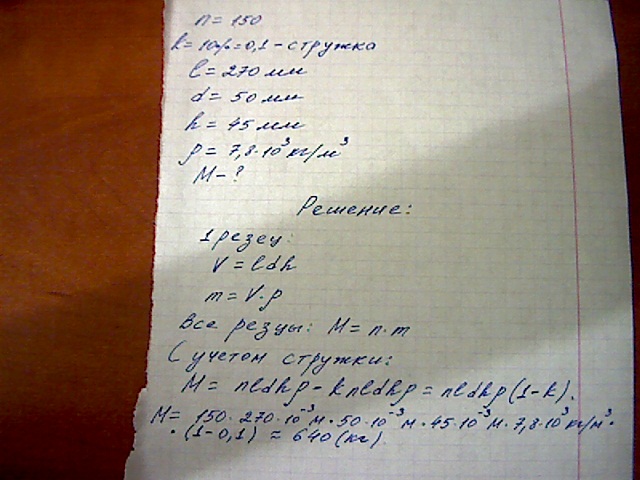 n = 150
k = 10% = 0,1 - стружка
l = 270 мм
d = 50 мм
h = 45 мм
ρ = 7,8·10³ кг/м³
M - ?
Решение:
1 резец:
V = ldh
m = V·ρ
Все резцы: M = n·m
С учетом стружки:
M = nldhρ - knldhρ = nldhρ(1-k).
M = 150·270·10⁻³м·50·10⁻³м·45·10⁻³м·7,8·10³кг/м³·
·(1-0,1) ≈ 640(кг).